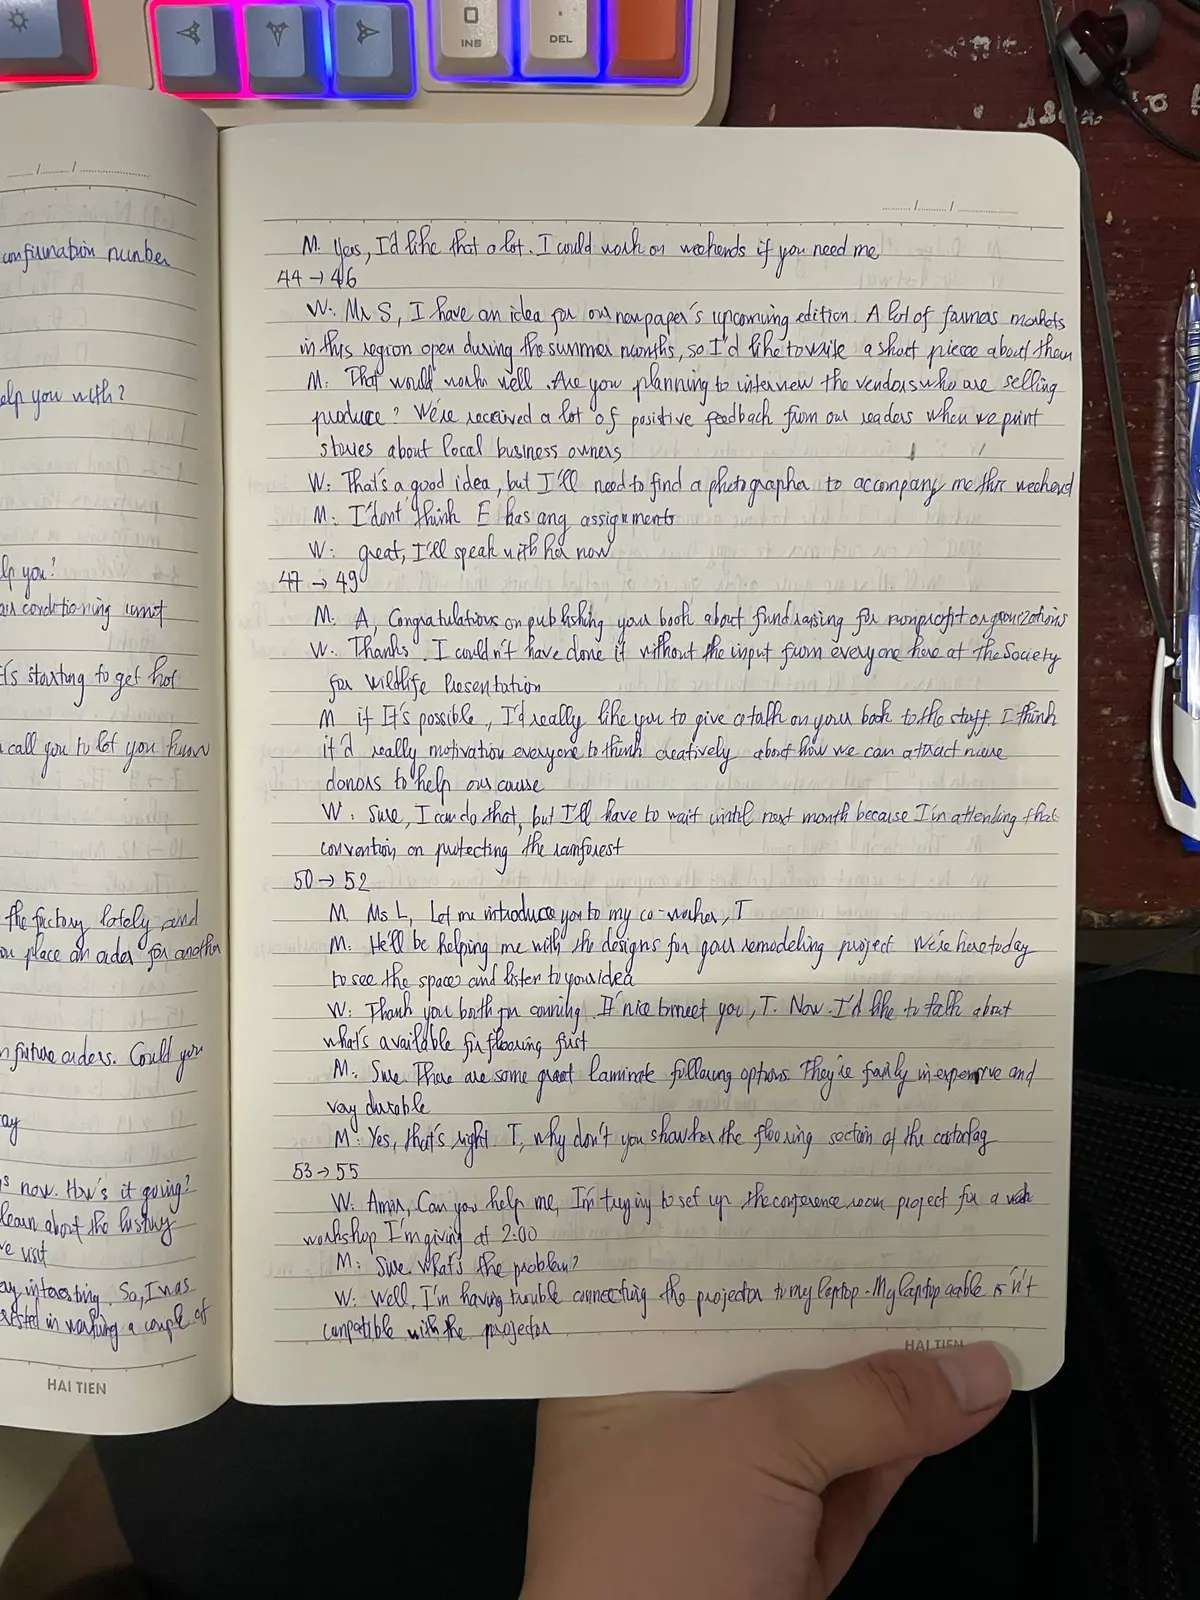 INS
DEL
confirmation number
help you with?
help you?
air conditioning unit
it's starting to get hot
call you to let you know
the factory lately and
you place an order for another
future orders. Could you
now. How's it going?
learn about the history
we visit
interesting. So, I was
in working a couple of
HAI TIEN
M: Yes, I'd like that a lot. I could work on weekends if you need me
44 → 46
W: Mr S, I have an idea for our newpaper's upcoming edition. A lot of farmers markets
in this region open during the summer months, so I'd like to write a short piece about them
M: That would work well. Are you planning to interview the vendors who are selling
produce? We're received a lot of positive feedback from our readers when we print
stories about local business owners
W: That's a good idea, but I'll need to find a photographer to accompany me this weekend
M: I don't think E has any assignments
W: great, I'll speak with her now
47 → 49
M: A, Congratulations on publishing your book about fundraising for nonprofit organizations
W: Thanks. I couldn't have done it without the input from everyone here at The Society
for Wildlife Presentation
M if It's possible, I'd really like you to give a talk on your book to the staff. I think
it'd really motivation everyone to think creatively about how we can attract more
donors to help our cause
W: Sure, I can do that, but I'll have to wait until next month because I'm attending that
convention on protecting the rainforest
50 → 52
M, Ms L, Let me introduce you to my co-worker, T
M: He'll be helping me with the designs for your remodeling project We're here today
to see the space and listen to your idea
W: Thank you both for coming. It nice to meet you, T. Now. I'd like to talk about
what's available for flooring first
M: Sure. There are some great laminate options They're fairly inexpensive and
very durable
M: Yes, that's right. T, why don't you show her the flooring section of the
53 → 55
W: Amir, Can you help me, I'm trying to set up the conference room project for a
workshop I'm giving at 2:00
M: Sure. What's the problem?
W: Well, I'm having trouble connecting the projector to my laptop. My laptop cable isn't
compatible with the projector
HAI TIEN